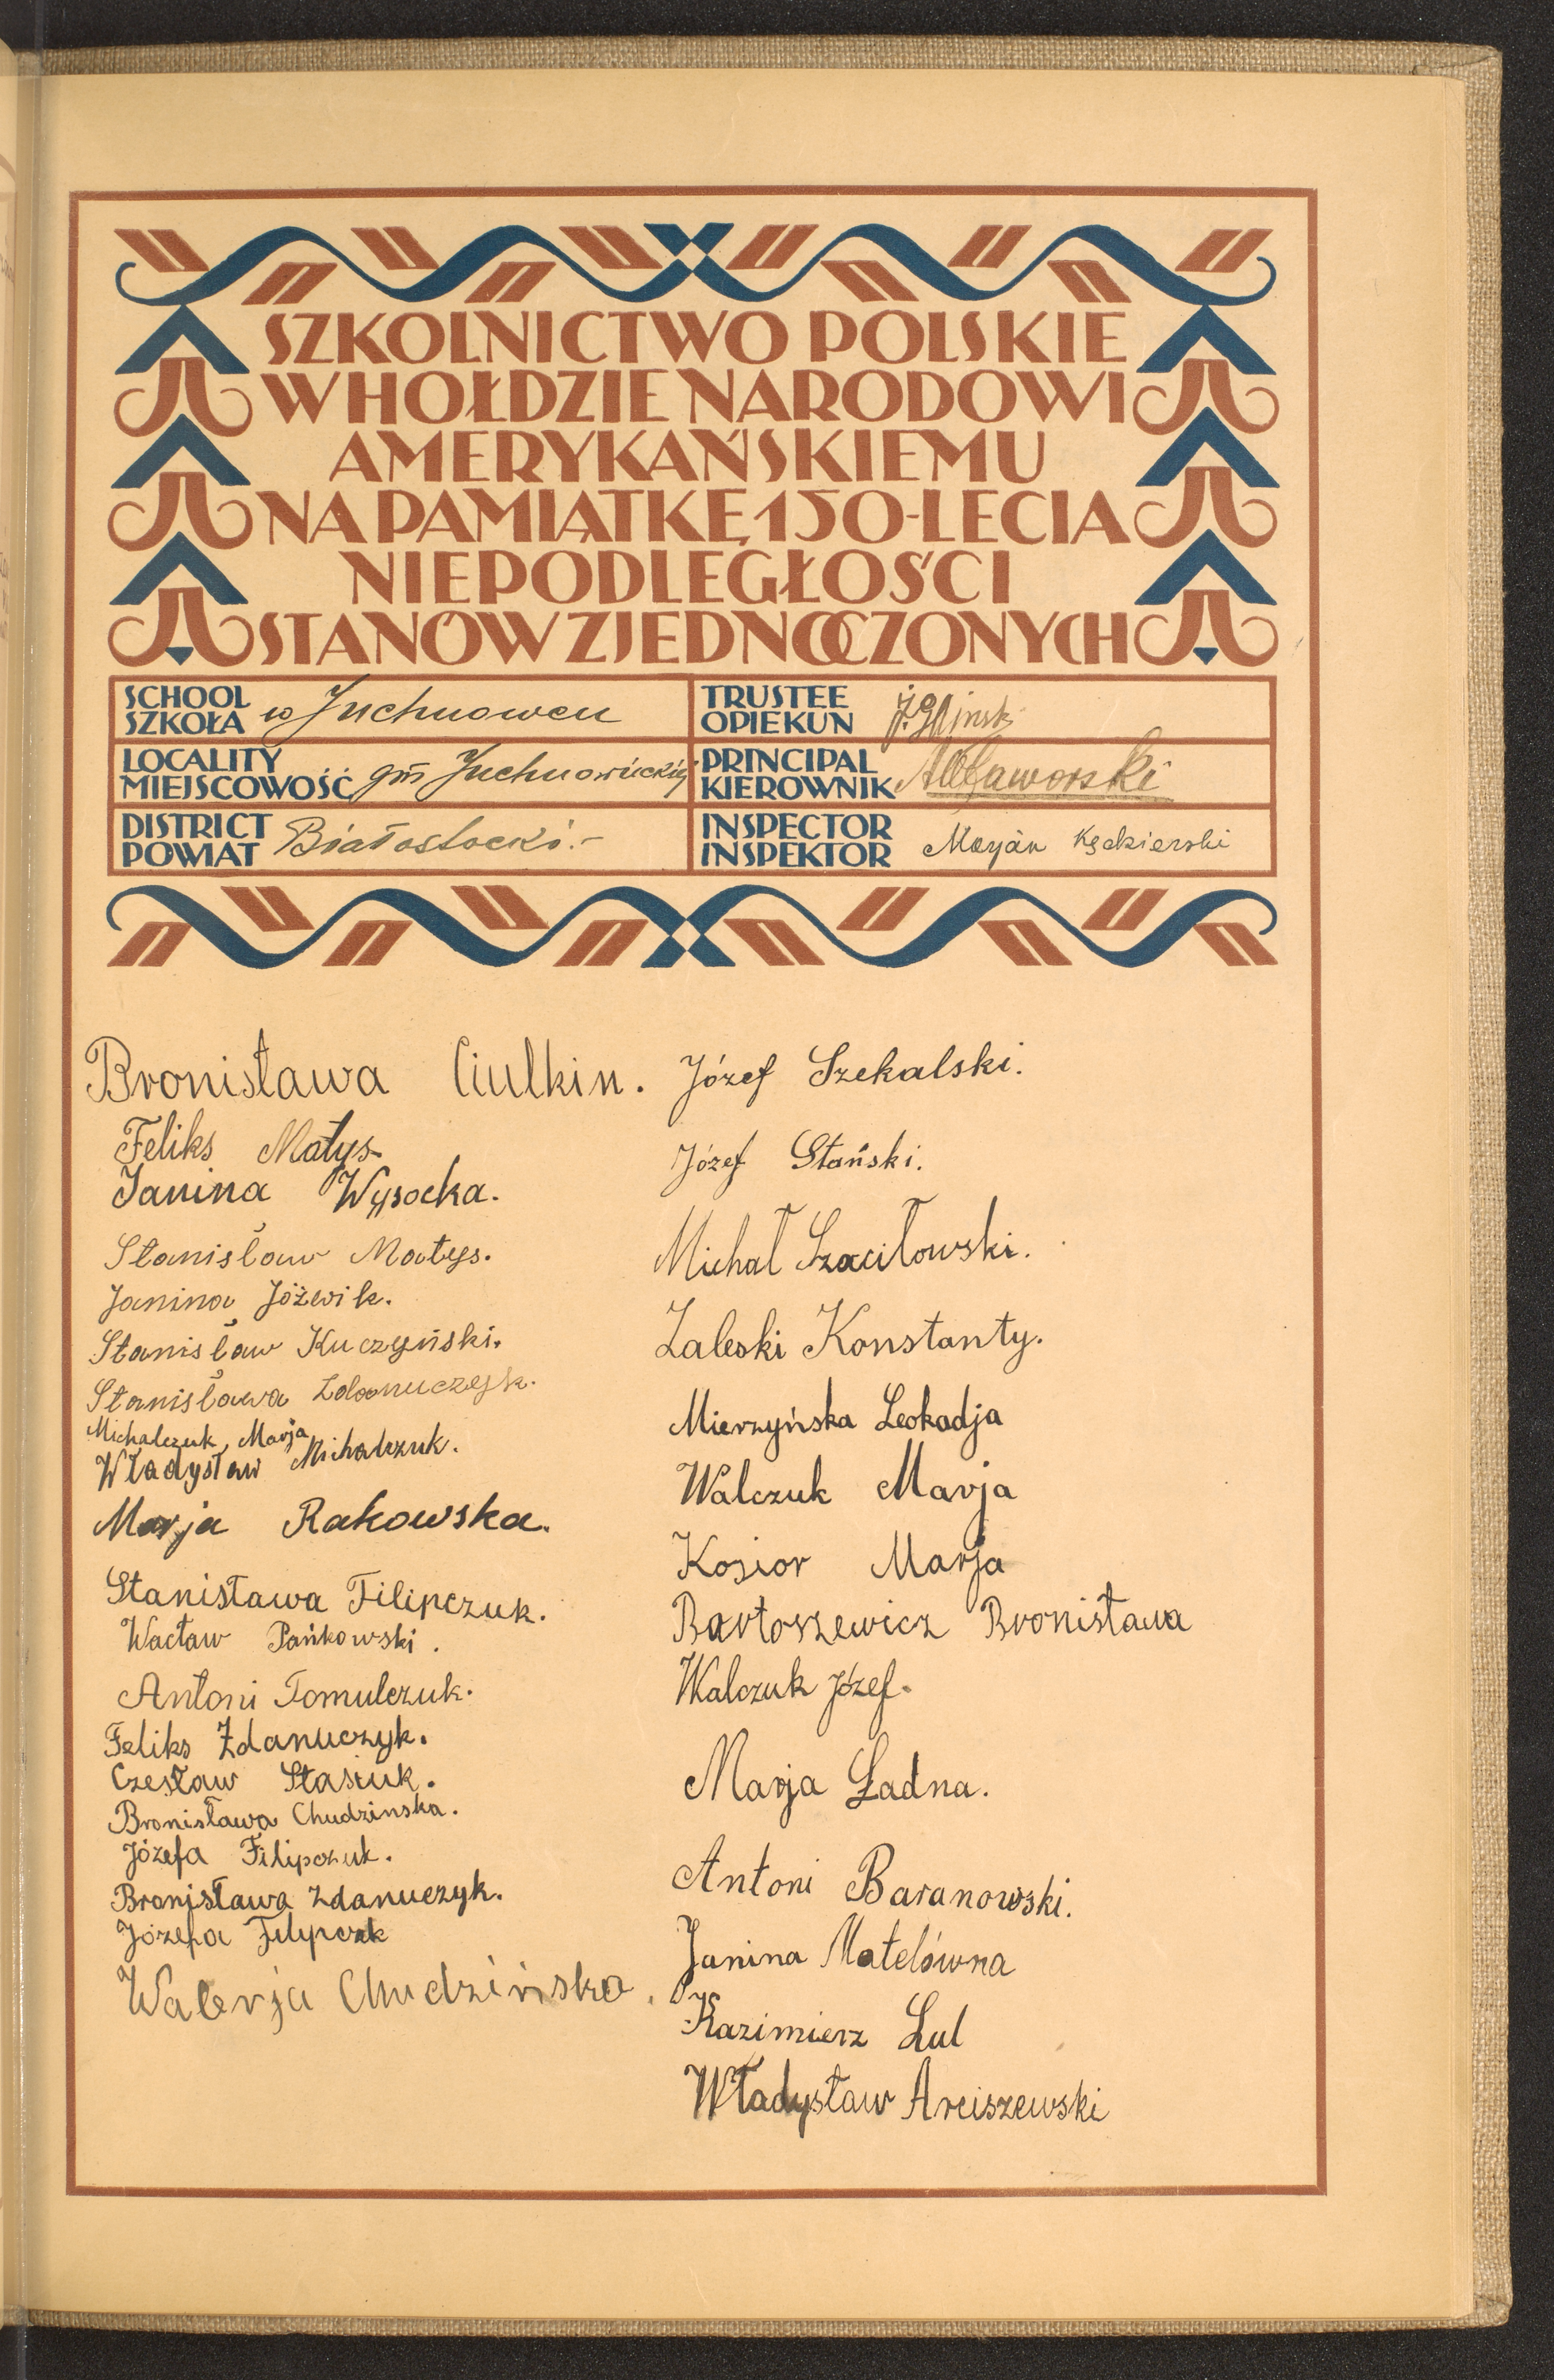 SZKOLNICTWO POLSKIE
W HOŁDZIE NARODOWI
AMERYKAŃSKIEMU
NA PAMIĄTKĘ 150-LECIA
NIEPODLEGŁOŚCI
STANÓW ZJEDNOCZONYCH
SCHOOL
SZKOŁA w Juchnowcu
LOCALITY
MIEJSCOWOŚĆ gm Juchnowieckiej
DISTRICT
POWIAT Białostocki.-
TRUSTEE
OPIEKUN
PRINCIPAL
KIEROWNIK
INSPECTOR
INSPEKTOR Marjan Kędzierski
Bronisława Ciulkin.
Feliks Matys
Janina Wysocka.
Stanisław Matys.
Janina Jóźwik.
Stanisław Kuczyński.
Stanisława Zdanuczyk.
Michalczuk, Marja
Władysław Michalczuk.
Marja Rakowska.
Stanisława Filipczuk.
Wacław Pańkowski.
Antoni Tomulczuk.
Feliks Zdanuczyk.
Czesław Stasiuk.
Bronisława Chudzinska.
Józefa Filipczuk.
Bronisława Zdanuczyk.
Józefa
Walerja Chudzińska.
Józef Szekalski.
Józef Stański.
Michał Szaciłowski.
Zaleski Konstanty.
Mierzyńska Leokadja
Walczuk Marja
Kosior Marja
Bartoszewicz Bronisława
Walczuk Józef.
Marja Ładna.
Antoni Baranowski.
Janina Matelówna
Kazimierz Lul
Władysław Arciszewski